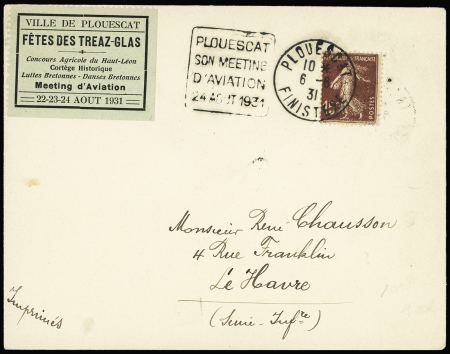 VILLE DE PLOUESCAT
FÊTES DES TREAZ-GLAS
Concours Agricole du Haut-Léon
Cortège Historique
Luttes Bretonnes - Danses Bretonnes
Meeting d'Aviation
22-23-24 AOUT 1931
PLOUESCAT
SON MEETING
D'AVIATION
24 AOUT 1931
10
6 -
31
FINIST
POSTES
Monsieur René Chausson
4 Rue Franklin
Le Havre
(Seine-Infre)
Imprimés